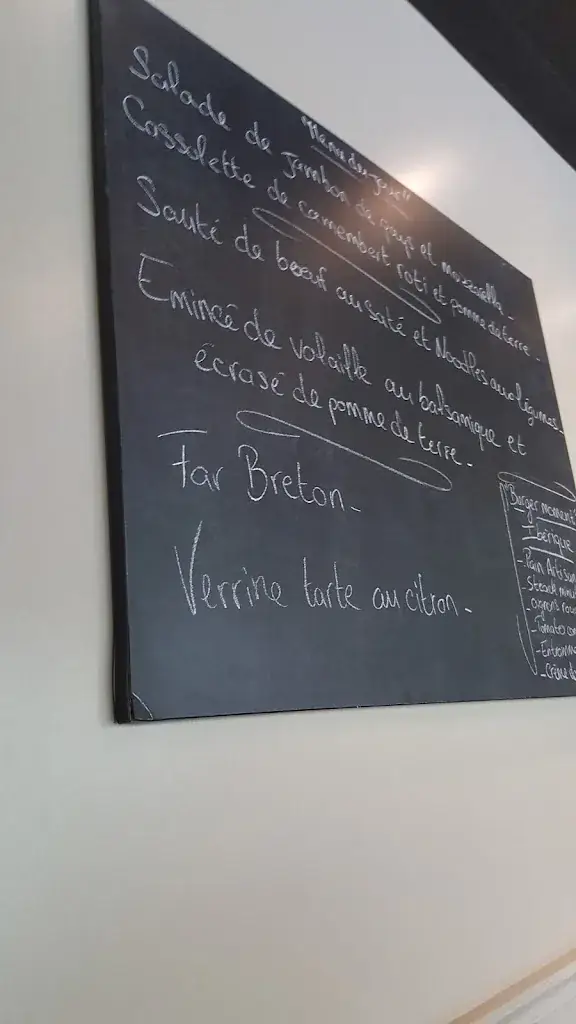 "Menu du jour"
Salade de jambon de pays et mozzarella.
Cassolette de camembert roti et pomme de terre.
Sauté de bœuf au saté et Noodles aux légumes.
Emincé de volaille au balsamique et
écrasé de pomme de terre.
Far Breton.
Verrine tarte au citron.
"Burger moment
Ibérique
- Pain Artisan
- Steack minut
- oignons rou
- Tomates con
- Emmen
- Crème de